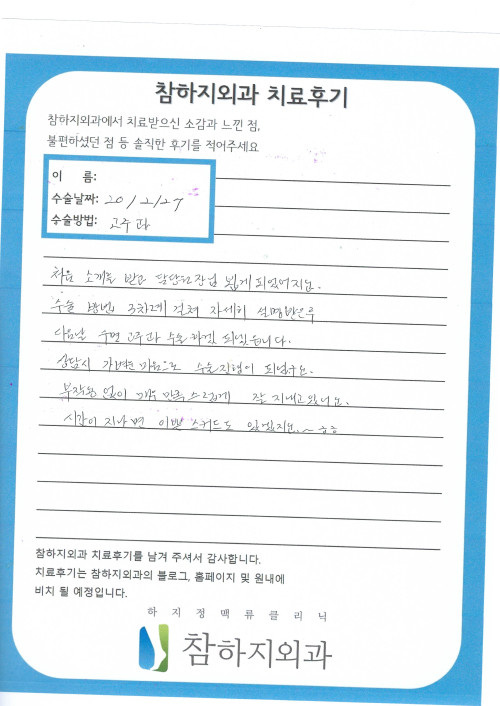 참하지외과 치료후기
참하지외과에서 치료받으신 소감과 느낀 점,
불편하셨던 점 등 솔직한 후기를 적어주세요
이 름:
수술날짜: 20/2/27
수술방법: 고주파
처음 소개를 받고 담당원장님 뵙게 되었어지요.
수술 방법 3차례 걸쳐 자세히 설명받은후
다음날 수면 고주파 수술하겠 되었습니다.
상담시 가벼운 마음으로 수술진행이 되었구요.
부작용 없이 매우 만족스럽게 잘 지내고있어요.
시간이 지나면 이쁜 스커트도 입겠지요.~ ㅎㅎ
참하지외과 치료후기를 남겨 주셔서 감사합니다.
치료후기는 참하지외과의 블로그, 홈페이지 및 원내에
비치 될 예정입니다.
하지정맥류클리닉
참하지외과